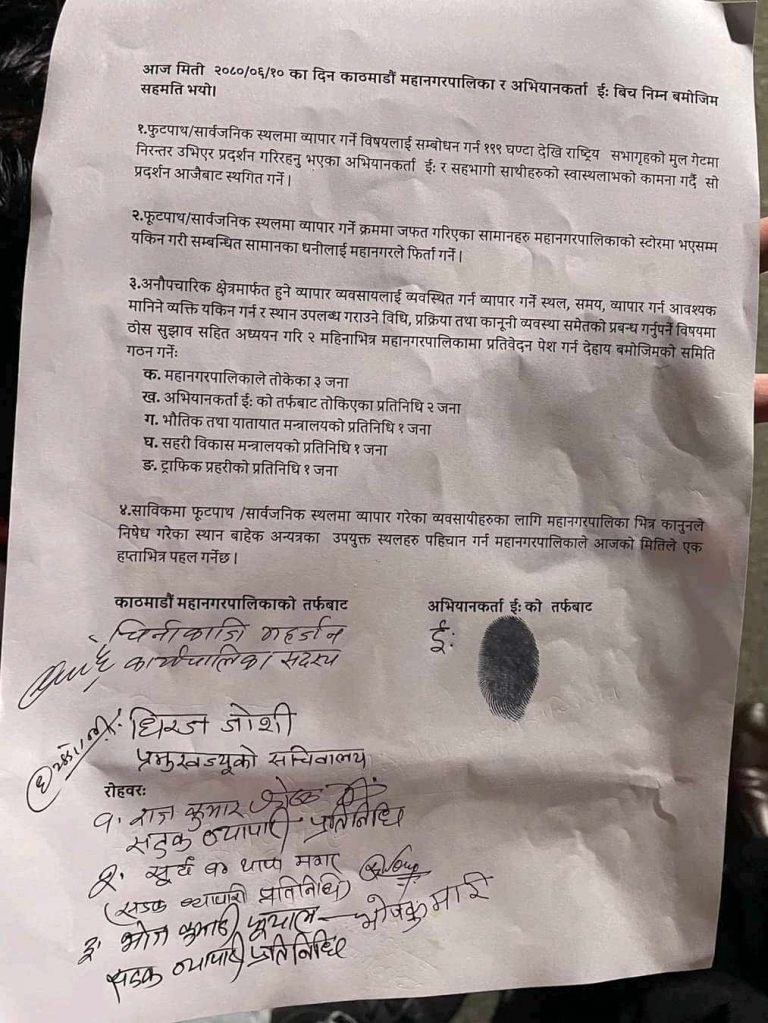 आज मिती २०८०/०६/१० का दिन काठमाडौं महानगरपालिका र अभियानकर्ता ईः बिच निम्न बमोजिम
सहमति भयो।
१.फुटपाथ/सार्वजनिक स्थलमा व्यापार गर्ने विषयलाई सम्बोधन गर्न १९९ घण्टा देखि राष्ट्रिय सभागृहको मुल गेटमा
निरन्तर उभिएर प्रदर्शन गरिरहनु भएका अभियानकर्ता ईः र सहभागी साथीहरुको स्वास्थलाभको कामना गर्दै सो
प्रदर्शन आजैबाट स्थगित गर्ने |
२.फूटपाथ/सार्वजनिक स्थलमा व्यापार गर्ने क्रममा जफत गरिएका सामानहरु महानगरपालिकाको स्टोरमा भएसम्म
यकिन गरी सम्बन्धित सामानका धनीलाई महानगरले फिर्ता गर्ने |
३.अनौपचारिक क्षेत्रमार्फत हुने व्यापार व्यवसायलाई व्यवस्थित गर्न व्यापार गर्ने स्थल, समय, व्यापार गर्न आवश्यक
मानिने व्यक्ति यकिन गर्न र स्थान उपलब्ध गराउने विधि, प्रक्रिया तथा कानूनी व्यवस्था समेतको प्रबन्ध गर्नुपर्ने विषयमा
ठोस सुझाव सहित अध्ययन गरि २ महिनाभित्र महानगरपालिकामा प्रतिवेदन पेश गर्न देहाय बमोजिमको समिति
गठन गर्नेः
क. महानगरपालिकाले तोकेका ३ जना
ख. अभियानकर्ता ईः को तर्फबाट तोकिएका प्रतिनिधि २ जना
ग. भौतिक तथा यातायात मन्त्रालयको प्रतिनिधि १ जना
घ. सहरी विकास मन्त्रालयको प्रतिनिधि १ जना
ङ. ट्राफिक प्रहरीको प्रतिनिधि १ जना
४.साविकमा फूटपाथ /सार्वजनिक स्थलमा व्यापार गरेका व्यवसायीहरुका लागि महानगरपालिका भित्र कानुनले
निषेध गरेका स्थान बाहेक अन्यत्रका उपयुक्त स्थलहरु पहिचान गर्न महानगरपालिकाले आजको मितिले एक
हप्ताभित्र पहल गर्नेछ |
काठमाडौं महानगरपालिकाको तर्फबाट
अभियानकर्ता ईः को तर्फबाट
चिनीकाजि महर्जन
ईः
कार्यपालिका सदस्य
धिरज जोशी
प्रमुखज्यूको सचिवालय
रोहवरः
१. राज कुमार
सडक व्यापारी प्रतिनिधि
२. सूर्य थापा मगर
(सडक व्यापारी प्रतिनिधि)
३. भोज कुमारी भोजकुमारी
सडक व्यापारी प्रतिनिधि